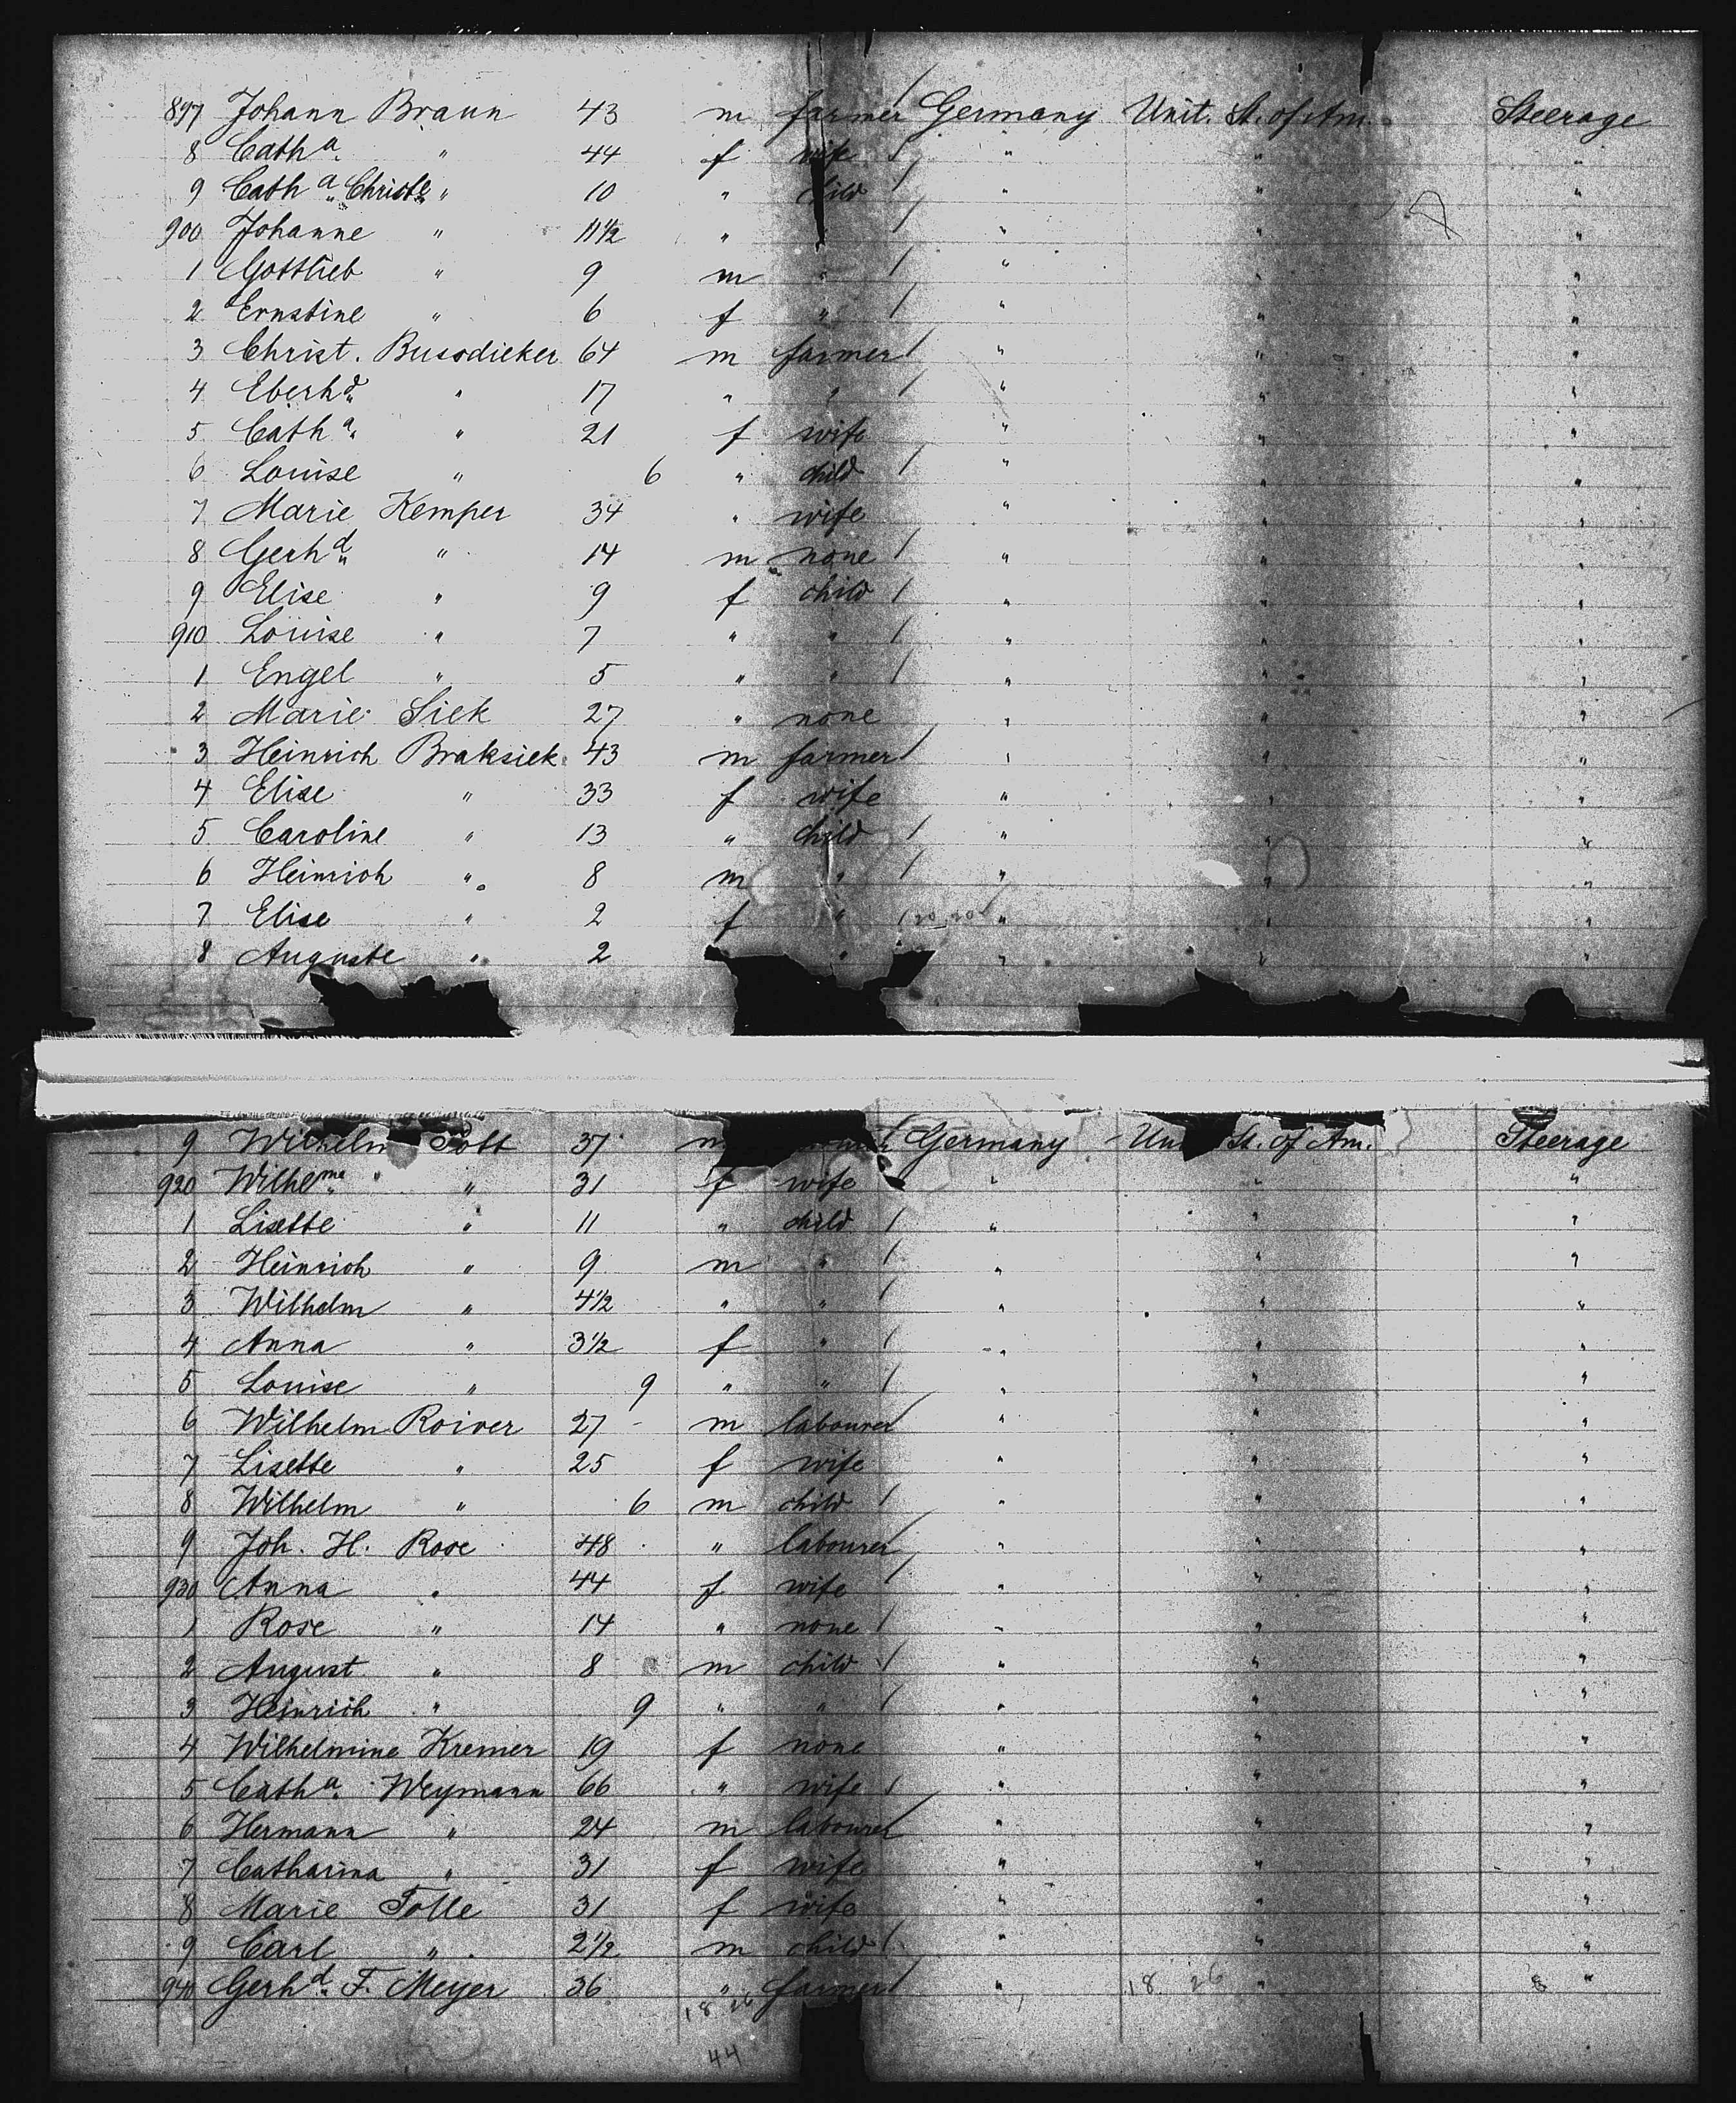 897 Johann Braun 43 m farmer Germany Unit. St. of Am. Steerage
8 Cath a. " 44 f wife " " "
9 Cath a. Christe " 10 " child " " "
900 Johanne " 11 1/2 " " " " "
1 Gottlieb " 9 m " " " "
2 Ernstine " 6 f " " " "
3 Christ. Bussdieker 64 m farmer " " "
4 Eberh d. " 17 " " " " "
5 Cath a. " 21 f wife " " "
6 Louise " 6 " child " " "
7 Marie Kemper 34 " wife " " "
8 Gerh d. " 14 m none " " "
9 Elise " 9 f child " " "
910 Louise " 7 " " " " "
1 Engel " 5 " " " " "
2 Marie Siek 27 " none " " "
3 Heinrich Braksiek 43 m farmer " " "
4 Elise " 33 f wife " " "
5 Caroline " 13 " child " " "
6 Heinrich " 8 m " " " "
7 Elise " 2 f " " " "
8 Auguste " 2 " " " "
9 Wilhelm Pott 37 m Germany St. of Am. Steerage
920 Wilhe me " 31 f wife " " "
1 Lisette " 11 " child " " "
2 Heinrich " 9 m " " " "
3 Wilhelm " 4 1/2 " " " " "
4 Anna " 3 1/2 f " " " "
5 Louise " 9 " " " " "
6 Wilhelm Roiver 27 m labourer " " "
7 Lisette " 25 f wife " " "
8 Wilhelm " 6 m child " " "
9 Joh. H. Rose 48 " labourer " " "
930 Anna " 44 f wife " " "
1 Rose " 14 " none " " "
2 August " 8 m child " " "
3 Heinrich " 9 " " " " "
4 Wilhelmine Kremer 19 f none " " "
5 Cath a. Weymann 66 " wife " " "
6 Hermann " 24 m labourer " " "
7 Catharina " 31 f wife " " "
8 Marie Tolle 31 f wife " " "
9 Carl " 2 1/2 m child " " "
940 Gerh d. F. Meyer 36 " farmer " 18 26 " 8 "
18 26
44